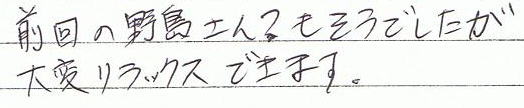 前回の野島さんもそうでしたが
大変リラックスできます。